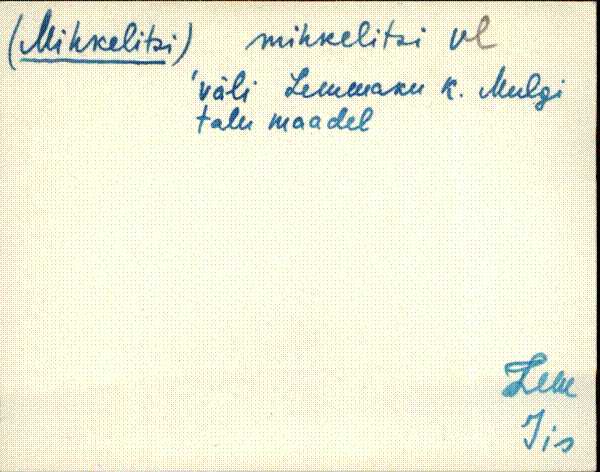 (Mihkelitsi) mihkelitsi vl
'väli Lemmaku k. Mulgi
talu maadel
Lem
Iis